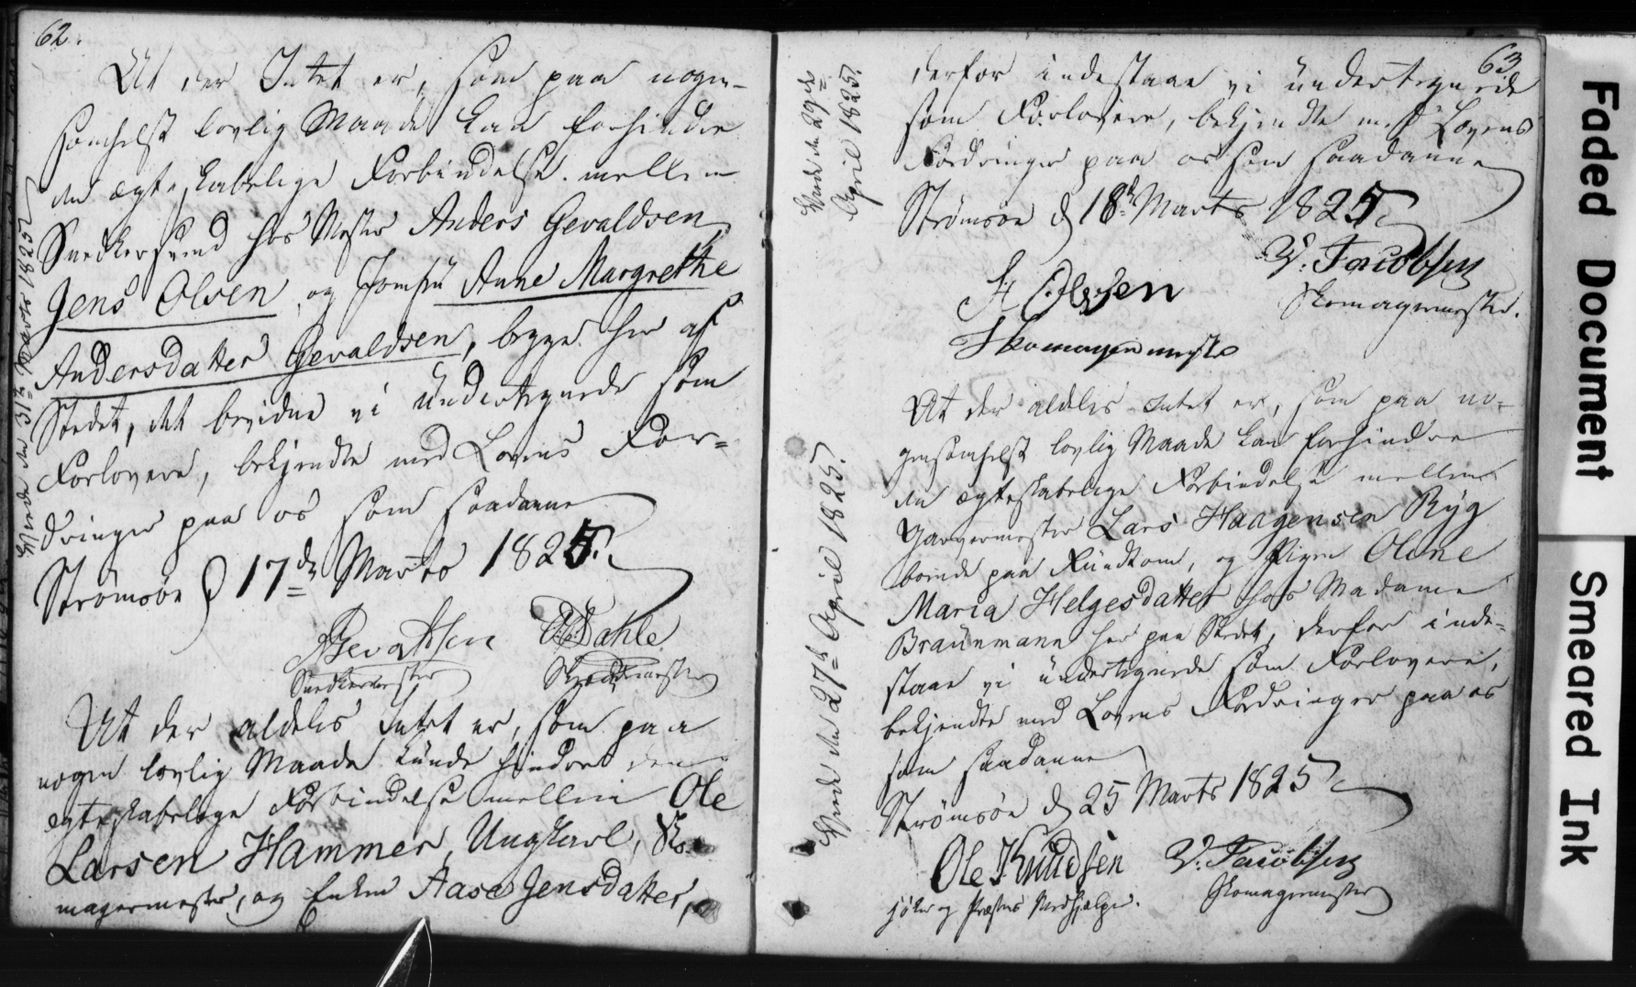 62.
At der Intet er, som paa nogen-
somhelst lovlig Maade kan forhindre
den ægteskabelige Forbindelse mellem
Snedkersvend hos Mester Anders Gevaldsen
Jens Olsen og Jomfrü Anne Margrethe
Andersdatter Gevaldsen, begge her af
Stedet, det bevidne vi Undertegnede som
Forlovere, bekjendte med Lovens For-
dringer paa os som saadanne
Strømsøe d 17de Marts 1825.
AGevaldsen
Snedkermester
Dahle
Viede den 31te Marts 1825
At der aldeles Intet er, som paa
nogen lovlig Maade kunde hindre den
egteskabelige Forbindelse mellem Ole
Larsen Hammer, Ungkarl, Sko-
magermester, og Enken Aase Jensdatter,
63
derfor indestaae vi ündertegnede
som Forlovere, bekjendte med Lovens
Fordringer paa os som saadanne
Strømsøe d 18de Marts 1825.
V. Jacobsen
Skomagermester.
Olsen
Skomagermester
Viede den 29de
April 1825.
At der aldeles Intet er, som paa no-
gensomhelst lovlig Maade kan forhindre
den ægteskabelige Forbindelse mellem
Garvermester Lars Haagensen Ryg
boende paa Kündtom, og Pigen Oline
Maria Helgesdatter hos Madame
Braünmann her paa Stedet, derfor inde-
staae vi ündertegnede som Forlovere,
bekjendte med Lovens Fordringer paa os
som saadanne
Strømsøe d 25 Marts 1825
Ole Knudsen
og Præstens Medhjælper.
V. Jacobsen
Skomagermester
Viede den 27de April 1825.
Faded Document
Smeared Ink